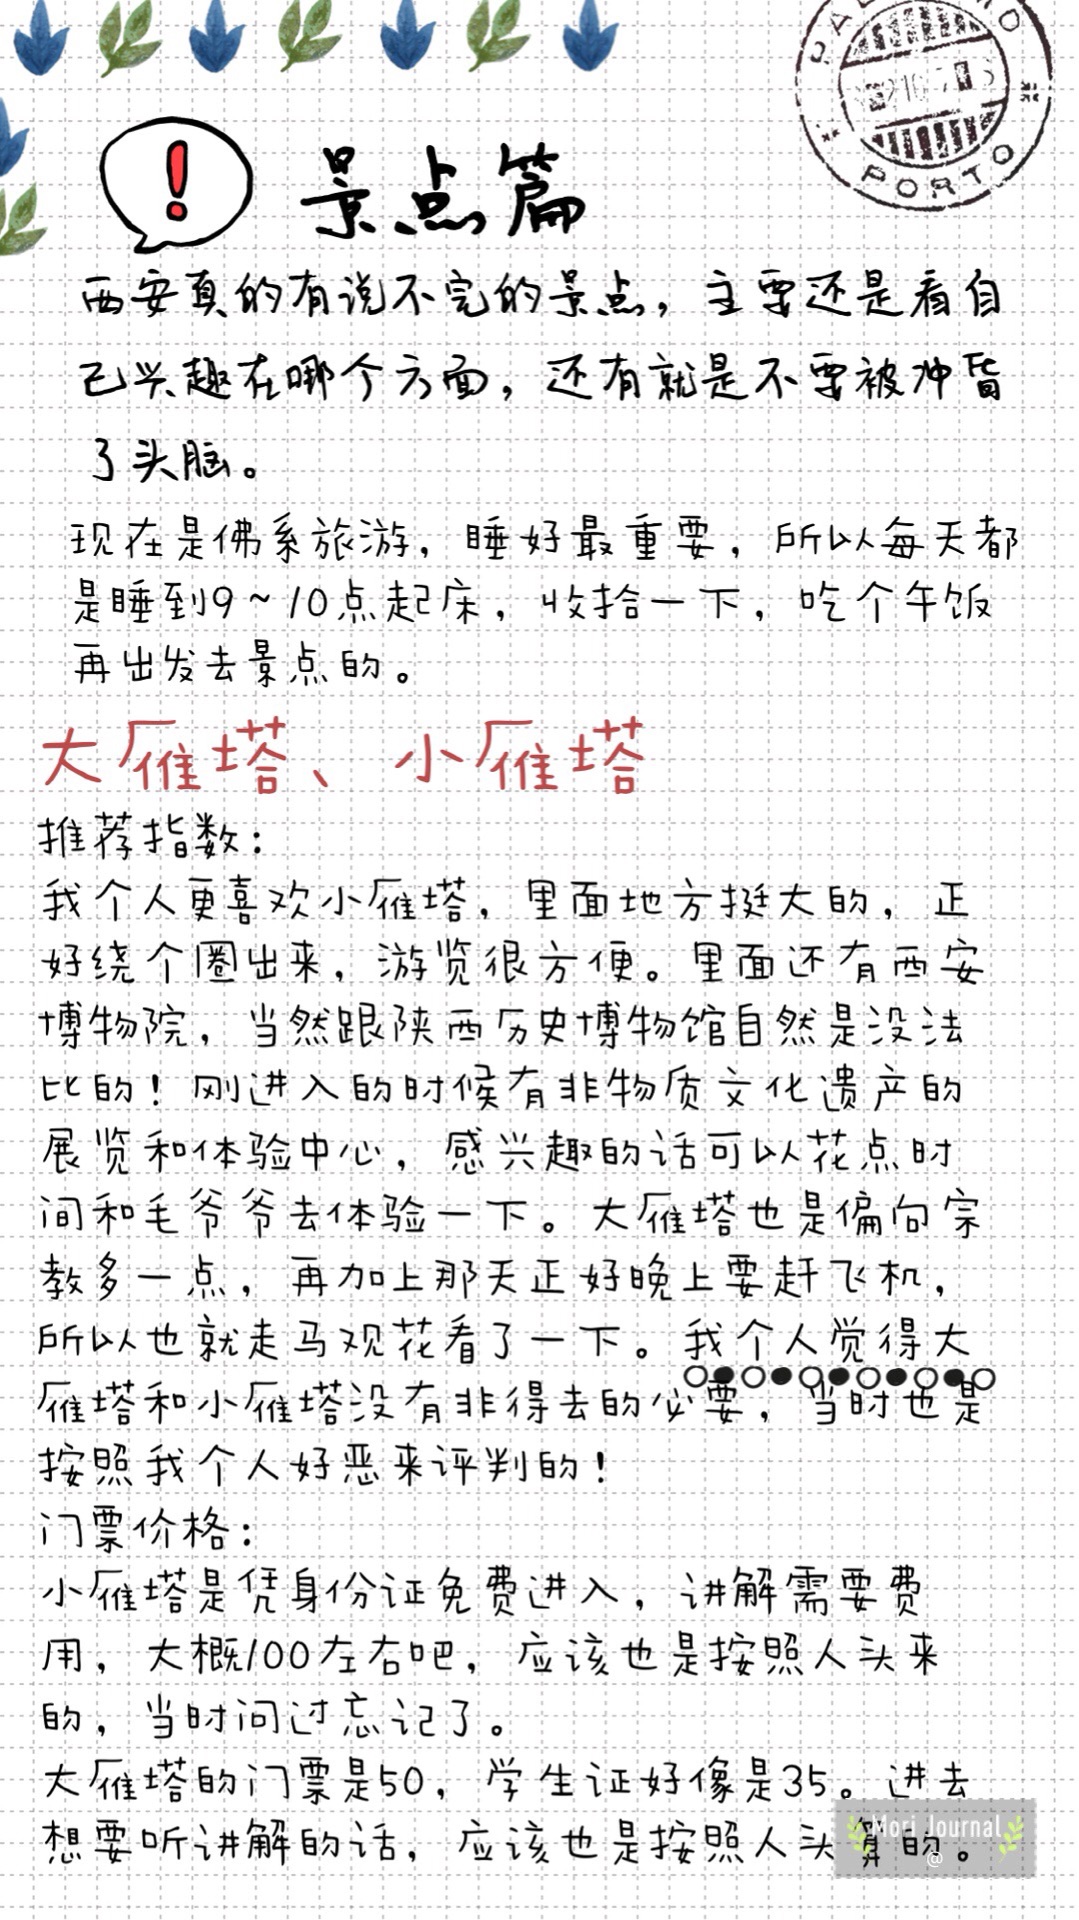 PORTO
!
景点篇
西安真的有说不完的景点，主要还是看自
己兴趣在哪个方面，还有就是不要被冲昏
了头脑。
现在是佛系旅游，睡好最重要，所以每天都
是睡到9~10点起床，收拾一下，吃个午饭
再出发去景点的。
大雁塔、小雁塔
推荐指数：
我个人更喜欢小雁塔，里面地方挺大的，正
好绕个圈出来，游览很方便。里面还有西安
博物院，当然跟陕西历史博物馆自然是没法
比的！刚进入的时候有非物质文化遗产的
展览和体验中心，感兴趣的话可以花点时
间和毛爷爷去体验一下。大雁塔也是偏向宗
教多一点，再加上那天正好晚上要赶飞机，
所以也就走马观花看了一下。我个人觉得大
雁塔和小雁塔没有非得去的必要，当时也是
按照我个人好恶来评判的！
门票价格：
小雁塔是凭身份证免费进入，讲解需要费
用，大概100左右吧，应该也是按照人头来
的，当时问过忘记了。
大雁塔的门票是50，学生证好像是35。进去
想要听讲解的话，应该也是按照人头算的。
Mori Journal
@